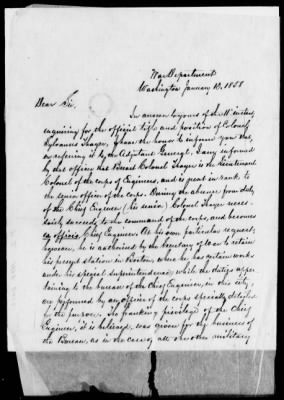 War Department
Washington January 13, 1858
Dear Sir.
In answer to yours of the 11th instant,
enquiring for the official title and position of Colonel
Sylvanus Thayer, I have the honor to inform you that,
on referring it to the Adjutant General, I am informed
by that officer that Brevet Colonel Thayer is the Lieutenant
Colonel of the corps of Engineers, and is next in rank to
the senior officer of the corps. During the absence from duty
of the Chief Engineer (his senior) Colonel Thayer neces-
sarily succeeds to the command of the corps, and becomes
ex officio, Chief Engineer. At his own particular request,
however, he is authorized by the Secretary of War to retain
his present station in Boston, where he has certain works
under his special superintendence; while the duties apper-
taining to the bureau of the Chief Engineer, in this city,
are performed by an officer of the corps specially detailed
for the purpose. The franking privilege of the Chief
Engineer, it is believed, was given for the business of
the Bureau, as in the case of all the other military